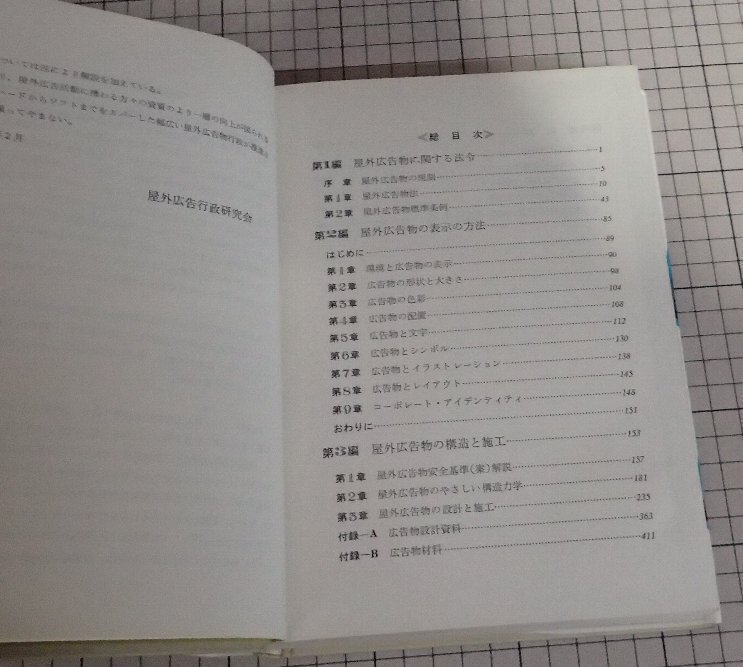 ついては各により解説を加えている。
、屋外広告活動に携わる方々の資質のより一層の向上が図られる
ハードからソフトまでをカバーした幅広い屋外広告物行政が推進
願ってやまない。
年2月
屋外広告行政研究会
≪総目次≫
第1編 屋外広告物に関する法令……1
序章 屋外広告物の規制……5
第1章 屋外広告物法……10
第2章 屋外広告物標準条例……43
第2編 屋外広告物の表示の方法……85
はじめに……89
第1章 環境と広告物の表示……90
第2章 広告物の形状と大きさ……98
第3章 広告物の色彩……104
第4章 広告物の配置……108
第5章 広告物と文字……112
第6章 広告物とシンボル……130
第7章 広告物とイラストレーション……138
第8章 広告物とレイアウト……145
第9章 コーポレート・アイデンティティ……148
おわりに……151
第3編 屋外広告物の構造と施工……153
第1章 屋外広告物安全基準(案)解説……157
第2章 屋外広告物のやさしい構造力学……181
第3章 屋外広告物の設計と施工……235
付録—A 広告物設計資料……363
付録—B 広告物材料……411